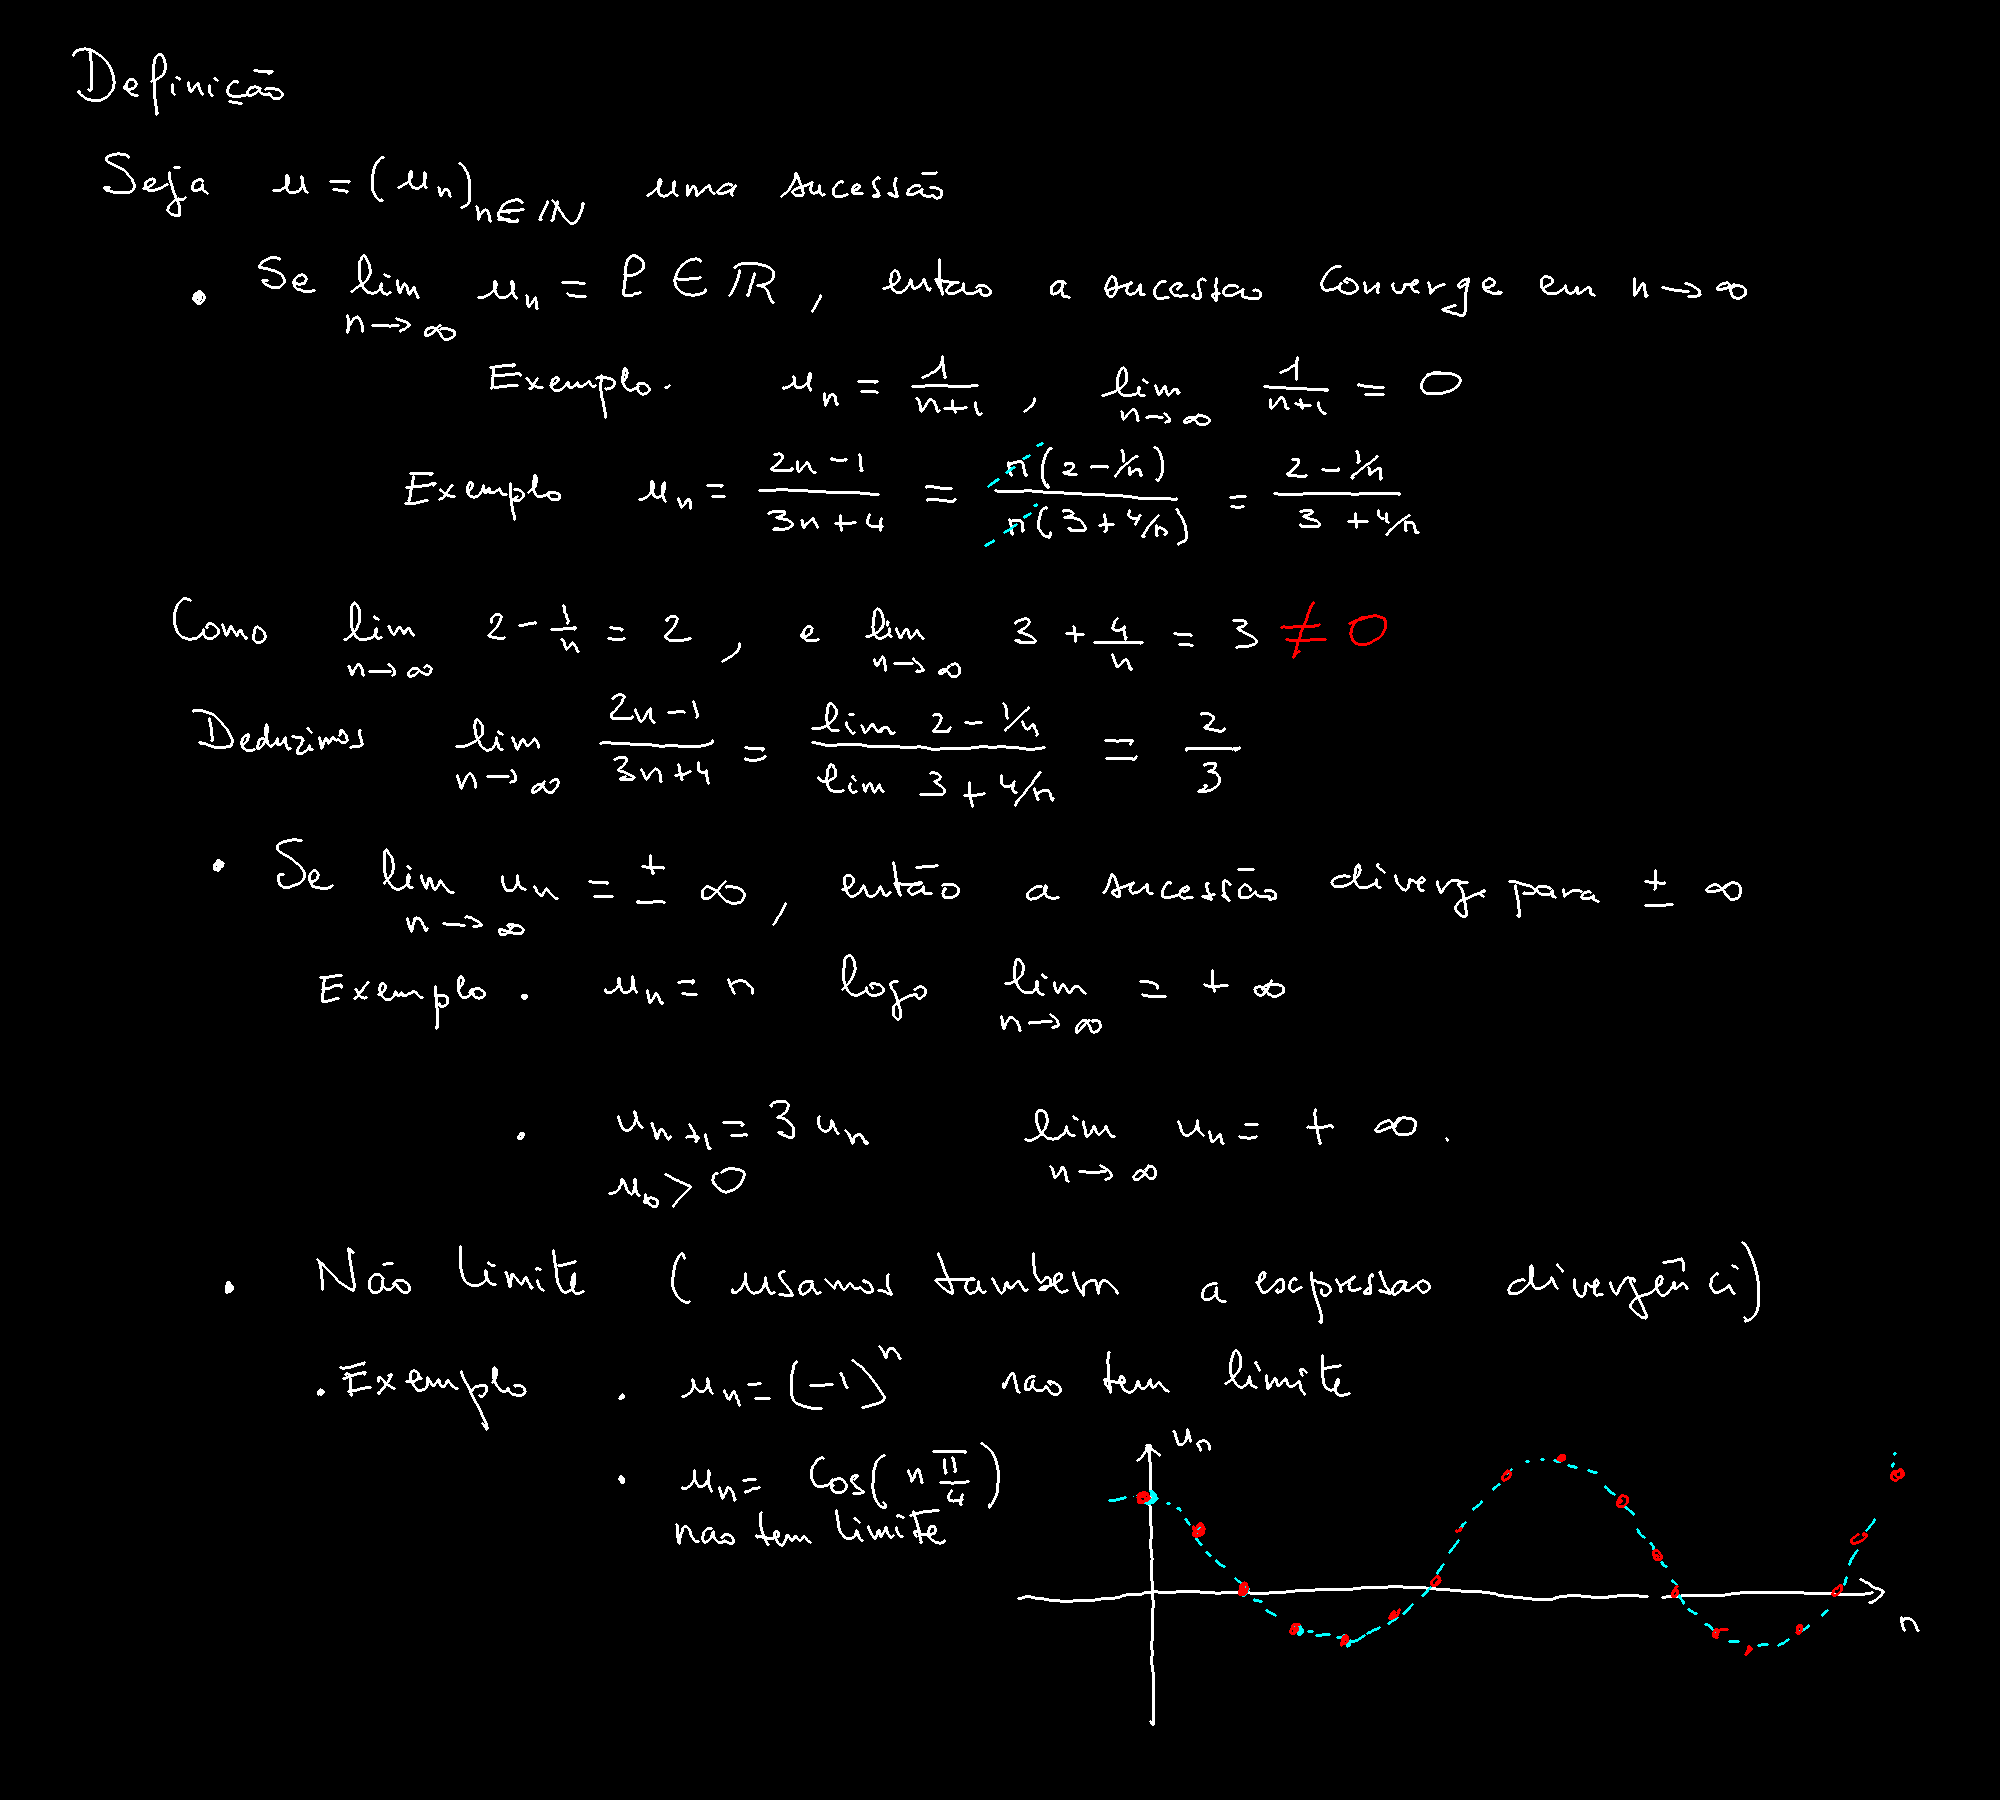 Definição
Seja u = (u_n)_{n∈ℕ} uma sucessão
• Se lim_{n→∞} u_n = ℓ ∈ ℝ, entao a sucessao converge em n→∞
Exemplo. u_n = 1/(n+1), lim_{n→∞} 1/(n+1) = 0
Exemplo u_n = (2n-1)/(3n+4) = n(2-1/n)/n(3+4/n) = (2-1/n)/(3+4/n)
Como lim_{n→∞} 2 - 1/n = 2, e lim_{n→∞} 3 + 4/n = 3 ≠ 0
Deduzimos lim_{n→∞} (2n-1)/(3n+4) = (lim 2-1/n)/(lim 3+4/n) = 2/3
• Se lim_{n→∞} u_n = ± ∞, então a sucessão diverge para ± ∞
Exemplo. u_n = n logo lim_{n→∞} = + ∞
• u_{n+1} = 3 u_n lim_{n→∞} u_n = + ∞.
u_0 > 0
• Não limite (usamos tambem a expressao divergênci)
• Exemplo • u_n = (-1)^n nao tem limite
• u_n = Cos(n π/4)
nao tem limite
u_n
n